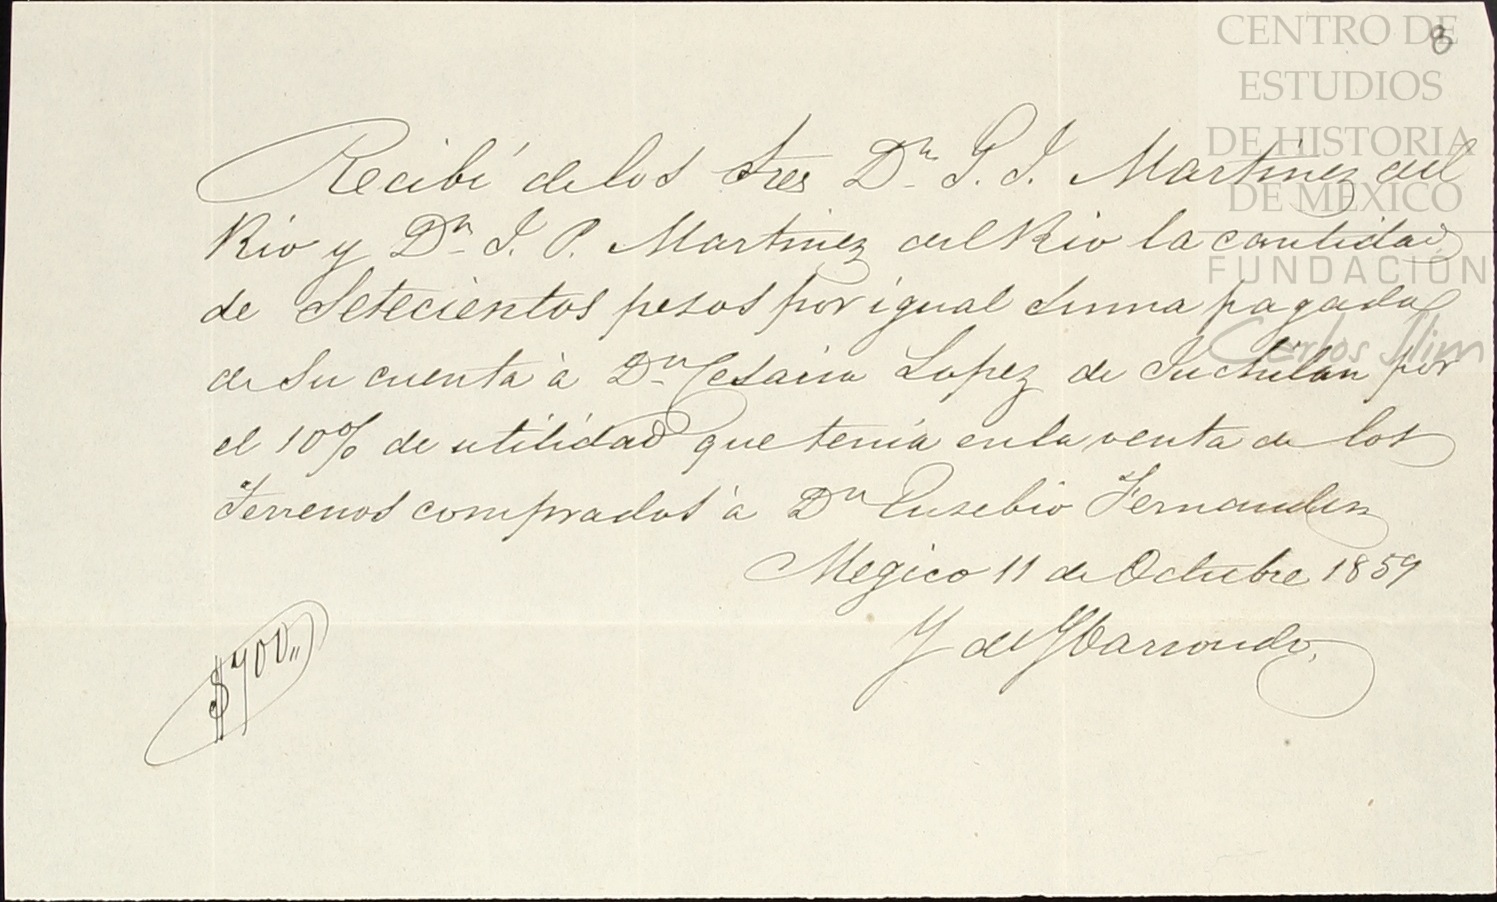 8
Recibí de los Sres Dn. G. J. Martinez del
Rio y Dn. J. P. Martinez del Rio la cantidad
de Setecientos pesos por igual suma pagada
de su cuenta à Dn. Cesario Lopez de Juchitan por
el 10% de utilidad que tenia en la venta de los
Terrenos comprados à Dn Eusebio Fernandez
Megico 11 de Octubre 1859
Y de Ybarrondo.
$700,,
CENTRO DE
ESTUDIOS
DE HISTORIA
DE MÉXICO
FUNDACIÓN
Carlos Slim